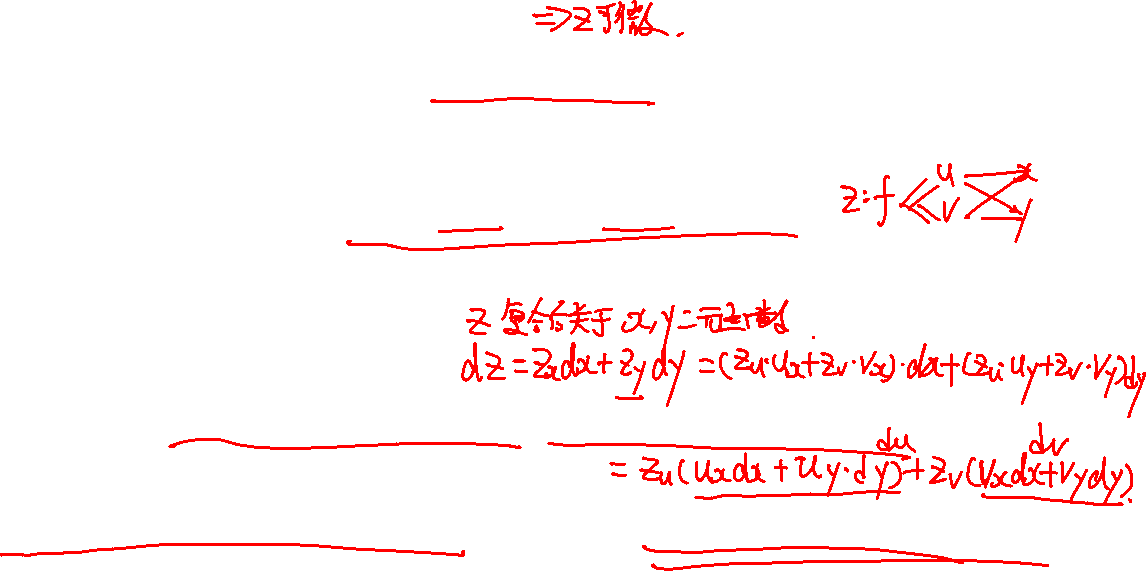 ⇒z可微.
z:f
u x
v y
z复合后关于x,y二元函数.
dz=z_x dx+z_y dy=(z_u·u_x+z_v·v_x)·dx+(z_u·u_y+z_v·v_y)dy
du dv
=z_u(u_x dx+u_y·dy)+z_v(v_x dx+v_y dy).